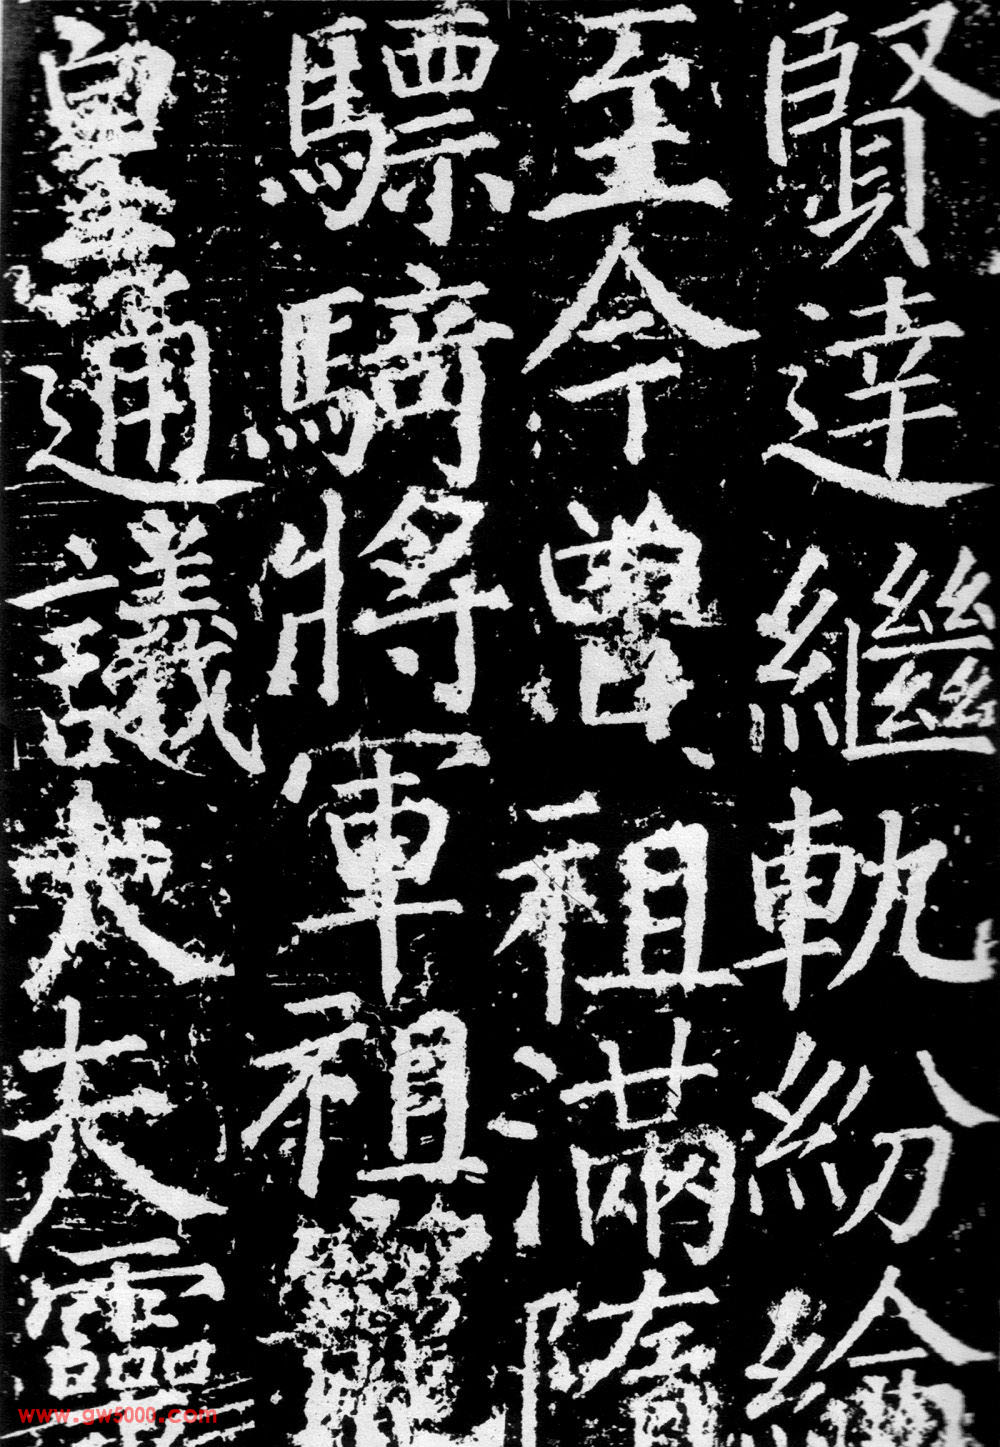 賢達繼軌紛綸
至今曽祖滿隋
驃騎將軍祖寵
皇通議大夫靈
www.gw5000.com